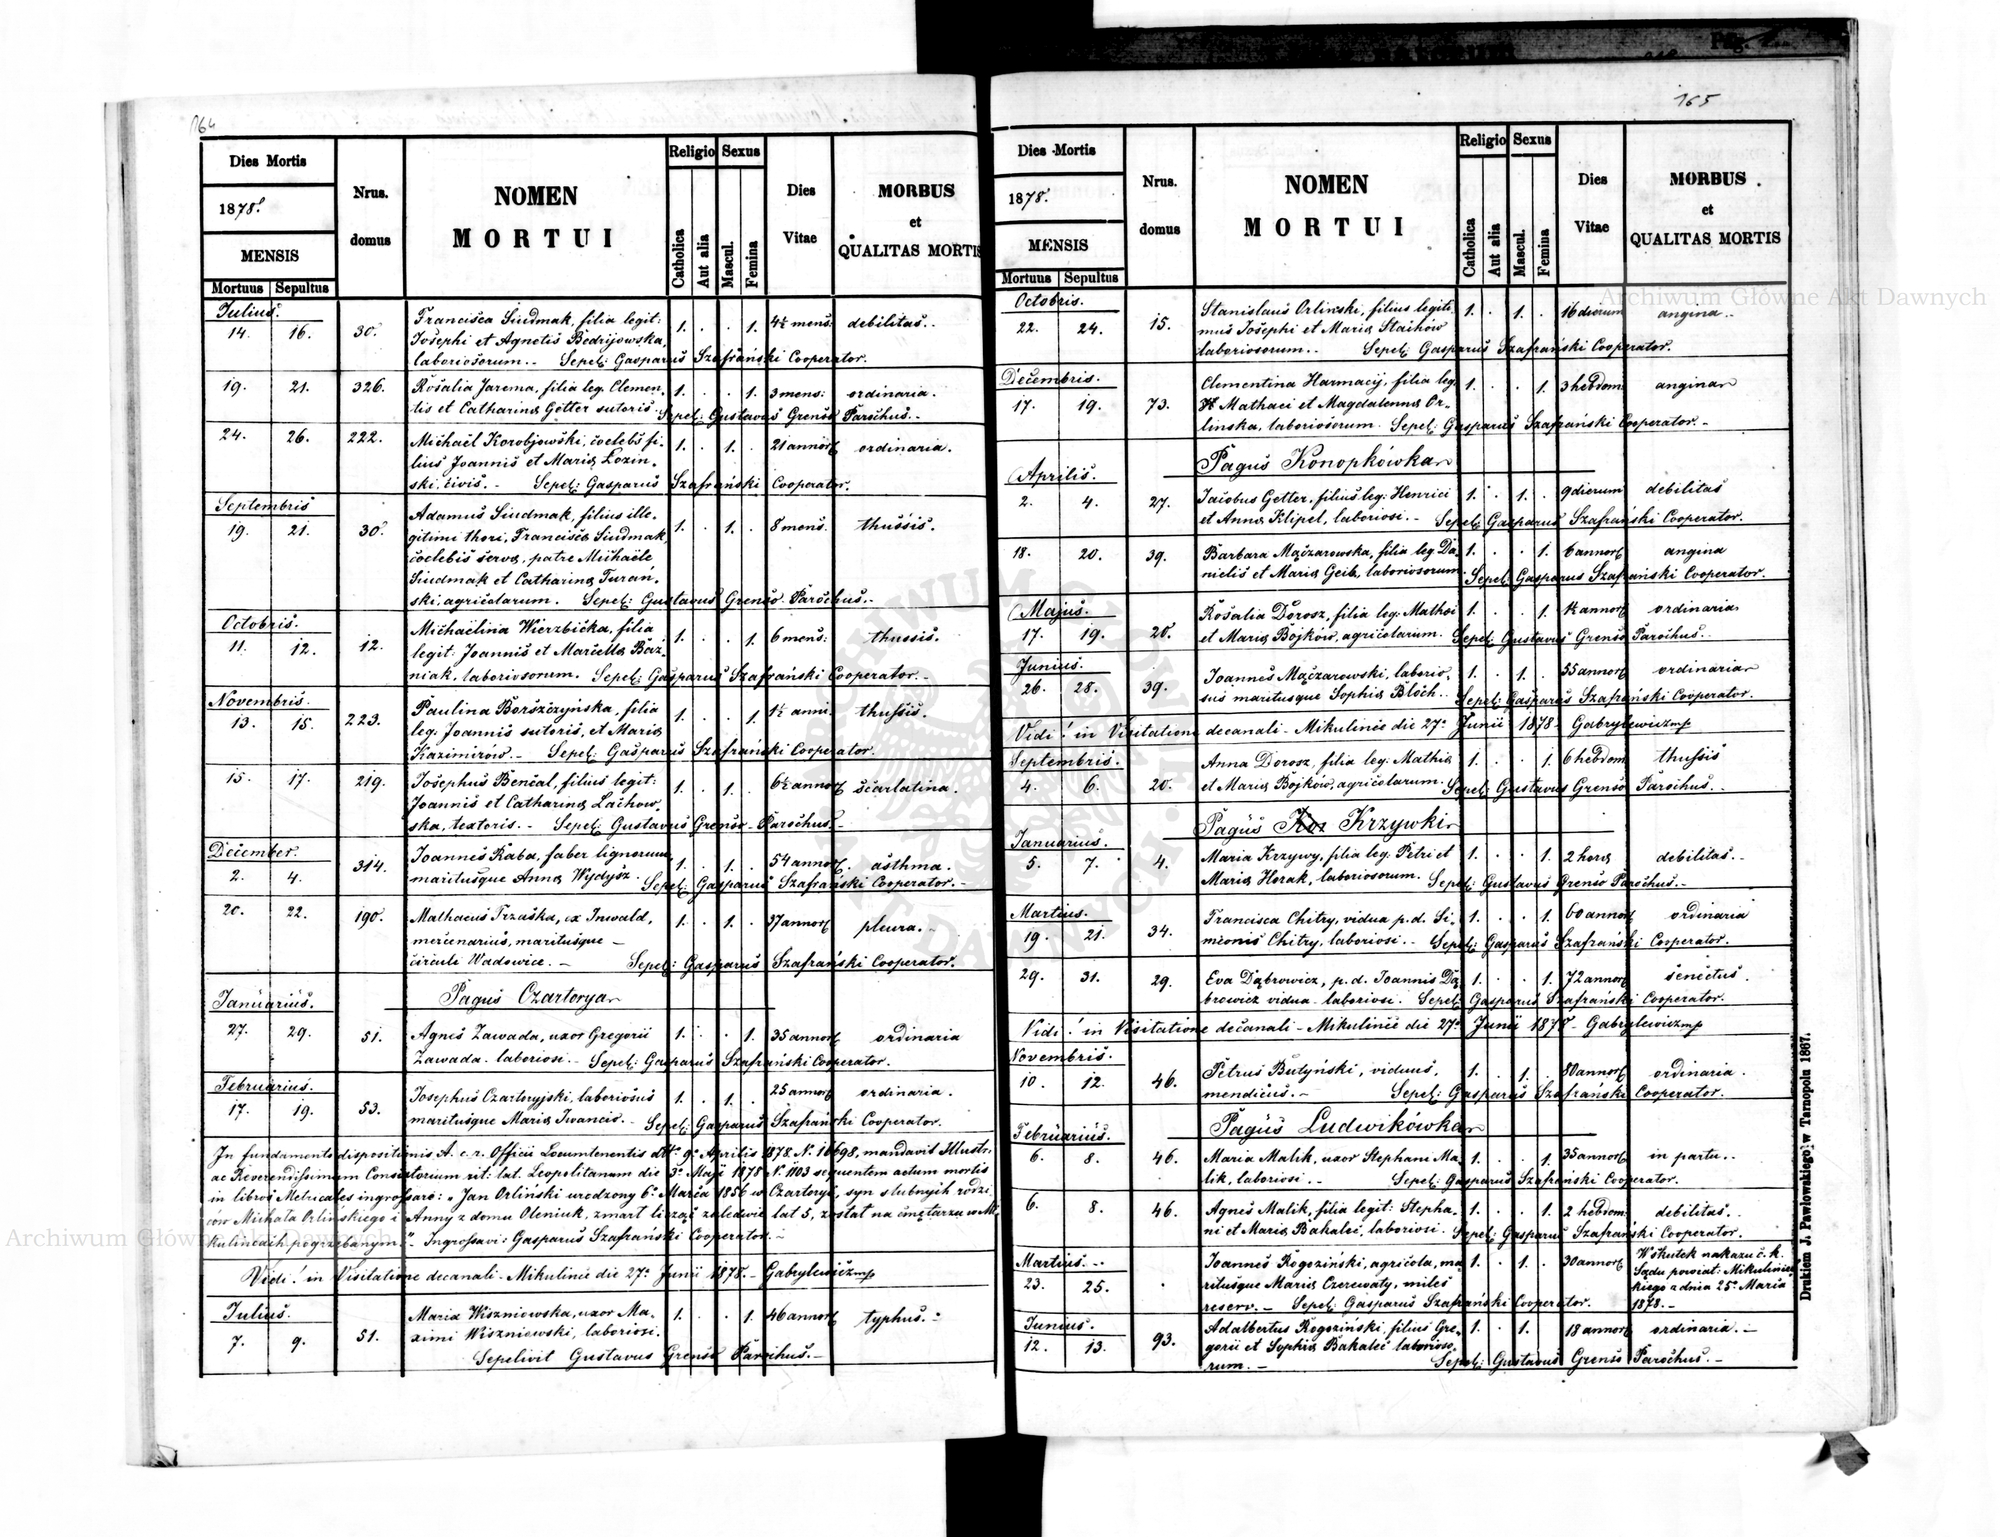 164
Dies Mortis
1878.
MENSIS
Mortuus Sepultus
Nrus. domus
NOMEN
MORTUI
Religio
Catholica
Aut alia
Sexus
Mascul.
Femina
Dies Vitae
MORBUS
et
QUALITAS MORTIS
Julius.
14. 16. 30. Francisca Siudmak, filia legit: 1. . . 1. 4½ mens: debilitas.
Josephi et Agnetis Bedrijowska,
laboriosorum. Sepel: Gasparus Szafrański Cooperator.
19. 21. 326. Rosalia Jarema, filia leg. Clemen- 1. . . 1. 3 mens: ordinaria.
tis et Catharina Getter sutoris. Sepel: Gustavus Grenso Parochus.
24. 26. 222. Michael Korobjowski, coelebs fi- 1. . 1. . 21 annor ordinaria.
lius Joannis et Maria Łozin-
ski, civis. Sepel: Gasparus Szafrański Cooperator.
Septembris
19. 21. 30. Adamus Siudmak, filius ille- 1. . 1. . 8 mens. thussis.
gitimi thori, Francisca Siudmak,
coelebis serva, patre Michaele
Siudmak et Catharina Turań-
ski, agricolarum. Sepel: Gustavus Grenso Parochus.
Octobris.
11. 12. 12. Michaelina Wierzbicka, filia 1. . . 1. 6 mens: thussis.
legit: Joannis et Marcella Baz-
niak, laboriosorum. Sepel: Gasparus Szafrański Cooperator.
Novembris.
13. 15. 223. Paulina Borszczyńska, filia 1. . . 1. 1½ anni. thussis.
leg. Joannis sutoris, et Maria
Kazimirów. Sepel: Gasparus Szafrański Cooperator.
15. 17. 219. Josephus Bencal, filius legit: 1. . 1. . 6½ annor scarlatina.
Joannis et Catharina Lachow-
ska, textoris. Sepel: Gustavus Grenso Parochus.
December.
2. 4. 314. Joannes Raba, faber lignorum 1. . 1. . 54 annor asthma.
maritusque Anna Wydysz. Sepel: Gasparus Szafrański Cooperator.
20. 22. 190. Mathaeus Trzaska, ex Inwald, 1. . 1. . 37 annor pleura.
mercenarius, maritusque –
circuli Wadowice. Sepel: Gasparus Szafrański Cooperator.
Pagus Czartorya
Januarius.
27. 29. 51. Agnes Zawada, uxor Gregorii 1. . . 1. 35 annor ordinaria
Zawada laboriosi. Sepel: Gasparus Szafrański Cooperator.
Februarius.
17. 19. 53. Josephus Czartoryjski, laboriosus 1. . 1. . 25 annor ordinaria.
maritusque Maria Iwancio. Sepel: Gasparus Szafrański Cooperator.
In fundamento dispositionis A. c. r. Officii Locumtenentis dtto 9a Aprilis 1878 N. 16698, mandavit Illustr.
ac Reverendissimum Consistorium rit. lat. Leopolitanum die 3a Maji 1878 N. 1103 sequentem actum mortis
in libros Metricales ingrossare: „Jan Orliński urodzony 6o Marca 1856 w Czartoryi, syn slubnych rodzi-
ców Michała Orlińskiego i Anny z domu Oleniuk, zmarł licząc zaledwie lat 5, został na cmętarzu w Mi-
kulińcach pogrzebanym." Ingrossavi: Gasparus Szafrański Cooperator.
Vidi! in Visitatione decanali – Mikulińce die 27a Junii 1878. – Gabrylewicz mp
Julius.
7. 9. 51. Maria Wiszniowska, uxor Ma- 1. . . 1. 46 annor typhus.
ximi Wiszniowski, laboriosi.
Sepelivit Gustavus Grenso Parochus.
165
Dies Mortis
1878.
MENSIS
Mortuus Sepultus
Nrus. domus
NOMEN
MORTUI
Religio
Catholica
Aut alia
Sexus
Mascul.
Femina
Dies Vitae
MORBUS
et
QUALITAS MORTIS
Octobris.
22. 24. 15. Stanislaus Orlinski, filius legiti- 1. . 1. . 16 dierum angina.
mus Josephi et Maria Staichów
laboriosorum. Sepel: Gasparus Szafrański Cooperator.
Decembris.
17. 19. 73. Clementina Harmacij, filia leg. 1. . . 1. 3 hebdom: angina
Mathaei et Magdalenna Or-
linska, laboriosorum. Sepel: Gasparus Szafrański Cooperator.
Pagus Konopkówka
Aprilis.
2. 4. 27. Jacobus Getter, filius leg: Henrici 1. . 1. . 9 dierum debilitas
et Anna Klipel, laboriosi. Sepel: Gasparus Szafrański Cooperator.
18. 20. 39. Barbara Mączarowska, filia leg. Da- 1. . . 1. 6 annor angina
nielis et Maria Geib, laboriosorum. Sepel: Gasparus Szafrański Cooperator.
Majus.
17. 19. 20. Rosalia Dorosz, filia leg: Mathei 1. . . 1. 1½ annor ordinaria
et Maria Bojków, agricolarum. Sepel: Gustavus Grenso Parochus.
Junius.
26. 28. 39. Joannes Mączarowski, laborio- 1. . 1. . 55 annor ordinaria
sus maritusque Sophia Bloch. Sepel: Gasparus Szafrański Cooperator.
Vidi! in Visitatione decanali – Mikulińce die 27a Junii 1878 – Gabrylewicz mp
Septembris.
4. 6. 20. Anna Dorosz, filia leg: Mathia 1. . . 1. 6 hebdom thussis
et Maria Bojków, agricolarum. Sepel: Gustavus Grenso Parochus.
Pagus Krzywki
Januarius.
5. 7. 4. Maria Krzywy, filia leg: Petri et 1. . . 1. 2 hora debilitas.
Maria Horak, laboriosorum. Sepel: Gustavus Grenso Parochus.
Martius.
19. 21. 34. Francisca Chitry, vidua p. d. Si- 1. . . 1. 60 annor ordinaria
meonis Chitry, laboriosi. Sepel: Gasparus Szafrański Cooperator.
29. 31. 29. Eva Dąbrowicz, p. d. Joannis Dą- 1. . . 1. 72 annor senectus.
browicz vidua laboriosi. Sepel: Gasparus Szafrański Cooperator.
Vidi! in Visitatione decanali – Mikulińce die 27a Junii 1878 – Gabrylewicz mp
Novembris.
10. 12. 46. Petrus Butyński, viduus, 1. . 1. . 80 annor ordinaria.
mendicus. Sepel: Gasparus Szafrański Cooperator.
Pagus Ludwikówka
Februarius.
6. 8. 46. Maria Malik, uxor Stephani Ma- 1. . . 1. 35 annor in partu.
lik, laboriosi. Sepel: Gasparus Szafrański Cooperator.
6. 8. 46. Agnes Malik, filia legit: Stepha- 1. . . 1. 2 hebdom: debilitas.
ni et Maria Bakaleć, laboriosi. Sepel: Gasparus Szafrański Cooperator.
Martius.
23. 25. . Joannes Rogoziński, agricola, ma- 1. . 1. . 30 annor Wskutek nakazu c. k.
ritusque Maria Czerewaty, miles Sądu powiat: Mikuliniec-
reserv. Sepel: Gasparus Szafrański Cooperator. kiego z dnia 25o Marca
1878.
Junius.
12. 13. 93. Adalbertus Rogoziński, filius Gre- 1. . 1. . 18 annor ordinaria.
gorii et Sophia Bakaleć laborioso-
rum. Sepel: Gustavus Grenso Parochus.
Drukiem J. Pawłowskiego w Tarnopolu 1867.
Archiwum Główne Akt Dawnych
Archiwum Główne Akt Dawnych
ARCHIWUM GŁÓWNE AKT DAWNYCH